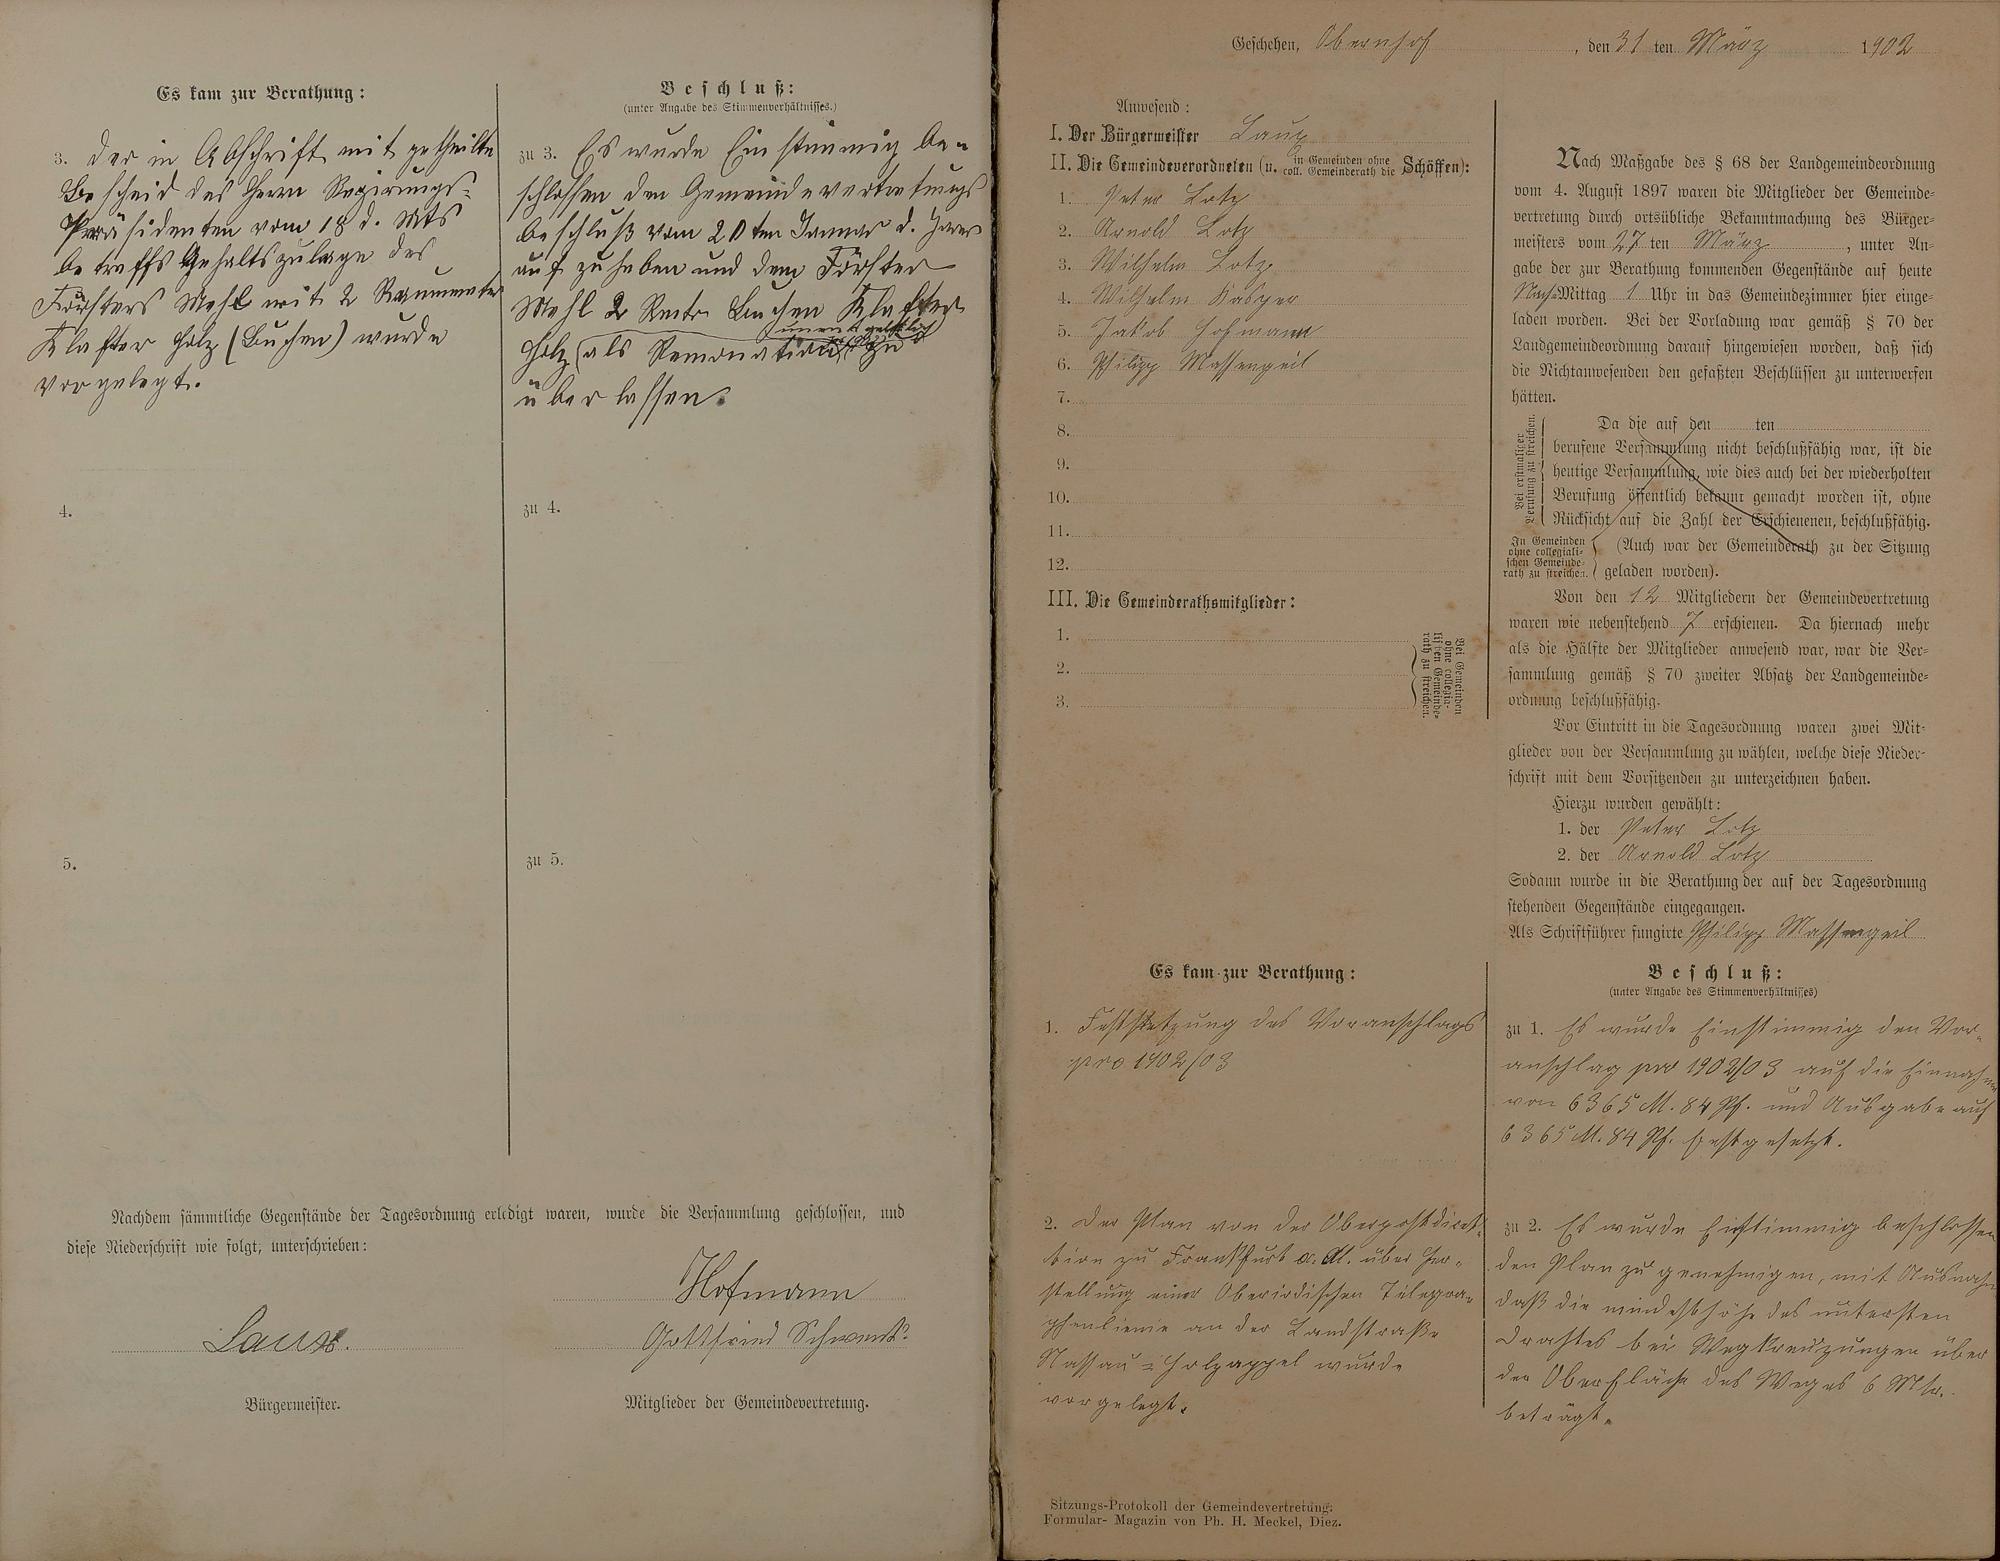 Es kam zur Berathung:
3. Der in Abschrift mit getheilte
Bescheid des Herrn Regirungs-
Präsidenten vom 18 d. Mts
betreffs Gehaltszulage des
Försters Mehl mit 2 Raummeter
Klafter Holz (Buchen) wurde
vorgelegt.
4.
5.
Beschluß:
(unter Angabe des Stimmenverhältnisses.)
zu 3. Es wurde Einstimmig be-
schlossen den Gemeindevertretungs
beschluß vom 20ten Januar d. Jares
auf zu heben und dem Förster
Mehl 2 Rmtr Buchen Klafter
unentgeltlich
Holz (als Remonation) zu
überlassen.
zu 4.
zu 5.
Nachdem sämmtliche Gegenstände der Tagesordnung erledigt waren, wurde die Versammlung geschlossen, und
diese Niederschrift wie folgt, unterschrieben:
Hofmann
Laux.
Gottfried Schwenk
Bürgermeister.
Mitglieder der Gemeindevertretung.
Geschehen, Obernhof, den 31 ten März 1902
Anwesend:
I. Der Bürgermeister Laux
II. Die Gemeindeverordneten (u. in Gemeinden ohne coll. Gemeinderath die Schöffen):
1. Peter Lotz
2. Arnold Lotz
3. Wilhelm Lotz
4. Wilhelm Kasper
5. Jakob Hofmann
6. Philipp Massengeil
7.
8.
9.
10.
11.
12.
III. Die Gemeinderathsmitglieder:
1.
2.
3.
Bei Gemeinden
ohne collegia-
lischen Gemeinde-
rath zu streichen.
Nach Maßgabe des § 68 der Landgemeindeordnung
vom 4. August 1897 waren die Mitglieder der Gemeinde-
vertretung durch ortsübliche Bekanntmachung des Bürger-
meisters vom 27 ten März, unter An-
gabe der zur Berathung kommenden Gegenstände auf heute
Nach-Mittag 1 Uhr in das Gemeindezimmer hier einge-
laden worden. Bei der Vorladung war gemäß § 70 der
Landgemeindeordnung darauf hingewiesen worden, daß sich
die Nichtanwesenden den gefaßten Beschlüssen zu unterwerfen
hätten.
Bei erstmaliger
Berufung zu streichen.
Da die auf den ten
berufene Versammlung nicht beschlußfähig war, ist die
heutige Versammlung, wie dies auch bei der wiederholten
Berufung öffentlich bekannt gemacht worden ist, ohne
Rücksicht auf die Zahl der Erschienenen, beschlußfähig.
In Gemeinden
ohne collegiali-
schen Gemeinde-
rath zu streichen.
(Auch war der Gemeinderath zu der Sitzung
geladen worden).
Von den 12 Mitgliedern der Gemeindevertretung
waren wie nebenstehend 7 erschienen. Da hiernach mehr
als die Hälfte der Mitglieder anwesend war, war die Ver-
sammlung gemäß § 70 zweiter Absatz der Landgemeinde-
ordnung beschlußfähig.
Vor Eintritt in die Tagesordnung waren zwei Mit-
glieder von der Versammlung zu wählen, welche diese Nieder-
schrift mit dem Vorsitzenden zu unterzeichnen haben.
Hierzu wurden gewählt:
1. der Peter Lotz
2. der Arnold Lotz
Sodann wurde in die Berathung der auf der Tagesordnung
stehenden Gegenstände eingegangen.
Als Schriftführer fungirte Philipp Massengeil
Es kam zur Berathung:
1. Festsetzung des Voranschlags
pro 1902/03
2. Der Plan von der Oberpostdirek-
tion zu Frankfurt a. M. über Her-
stellung einer Oberirdischen Telegra-
phenlienie an der Landstraße
Nassau - Holzappel wurde
vorgelegt.
Beschluß:
(unter Angabe des Stimmenverhältnisses)
zu 1. Es wurde Einstimmig den Vor-
anschlag pro 1902/03 auf die Einnahme
von 6365 M. 84 Pf. und Ausgabe auf
6365 M. 84 Pf. festgesetzt.
zu 2. Es wurde Eistimmig beschlossen
den Plan zu genehmigen, mit Ausnahm
daß die mindesthöhe des untersten
Drahtes bei Wegkreuzungen über
der Oberfläche des Weges 6 Mtr.
beträgt.
Sitzungs-Protokoll der Gemeindevertretung.
Formular- Magazin von Ph. H. Meckel, Diez.